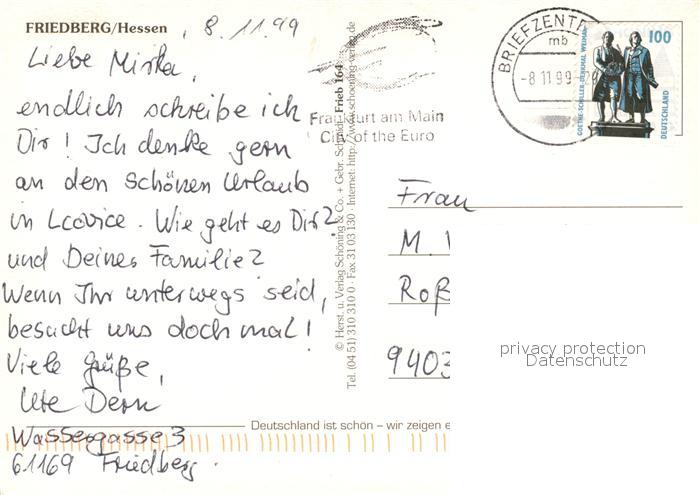 FRIEDBERG/Hessen , 8.11.99
Liebe Mirka,
endlich schreibe ich
Dir! Ich denke gern
an den schönen Urlaub
in Lcovice. Wie geht es Dir?
und Deiner Familie?
Wenn Ihr unterwegs seid,
besucht uns doch mal!
Viele Grüße,
Ute Dern
Wassergasse 3
61169 Friedberg.
© Herst. u. Verlag Schöning & Co. + Gebr. Schmidt · Frieb 164
Tel. (04 51) 310 310 0 · Fax 31 03 130 · Internet: http://www.schoening-verlag.de
Frankfurt am Main
City of the Euro
BRIEFZENT
mb
-8 11 99
100
GOETHE-SCHILLER-DENKMAL WEIMAR
DEUTSCHLAND
Frau
M.
Roß
9403
privacy protection
Datenschutz
Deutschland ist schön – wir zeigen e